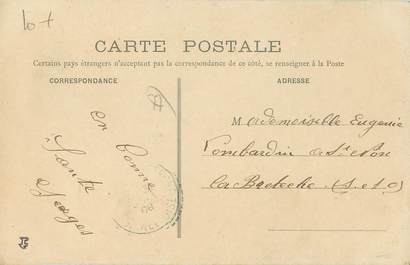 10 +
CARTE POSTALE
Certains pays étrangers n'acceptant pas la correspondance de ce côté, se renseigner à la Poste
CORRESPONDANCE
ADRESSE
en bonne
Santé
Mademoiselle Eugenie
Lombardin à St Nom
la Breteche (S-et-O)